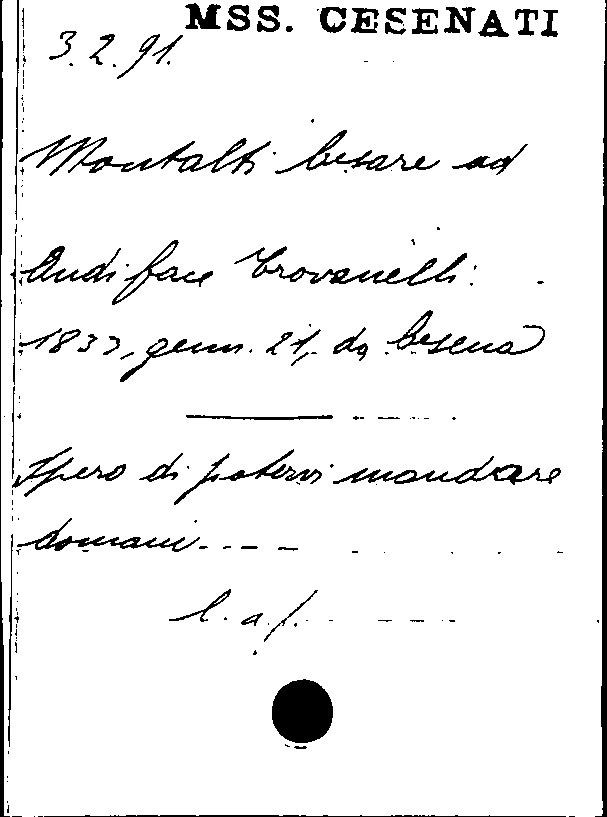 MSS. CESENATI
3.2.91.
Montalti Cesare ad
Audiface Trovanelli.
1837, genn. 21, da Cesena
Spero di potervi mandare
domani....
l. a f.